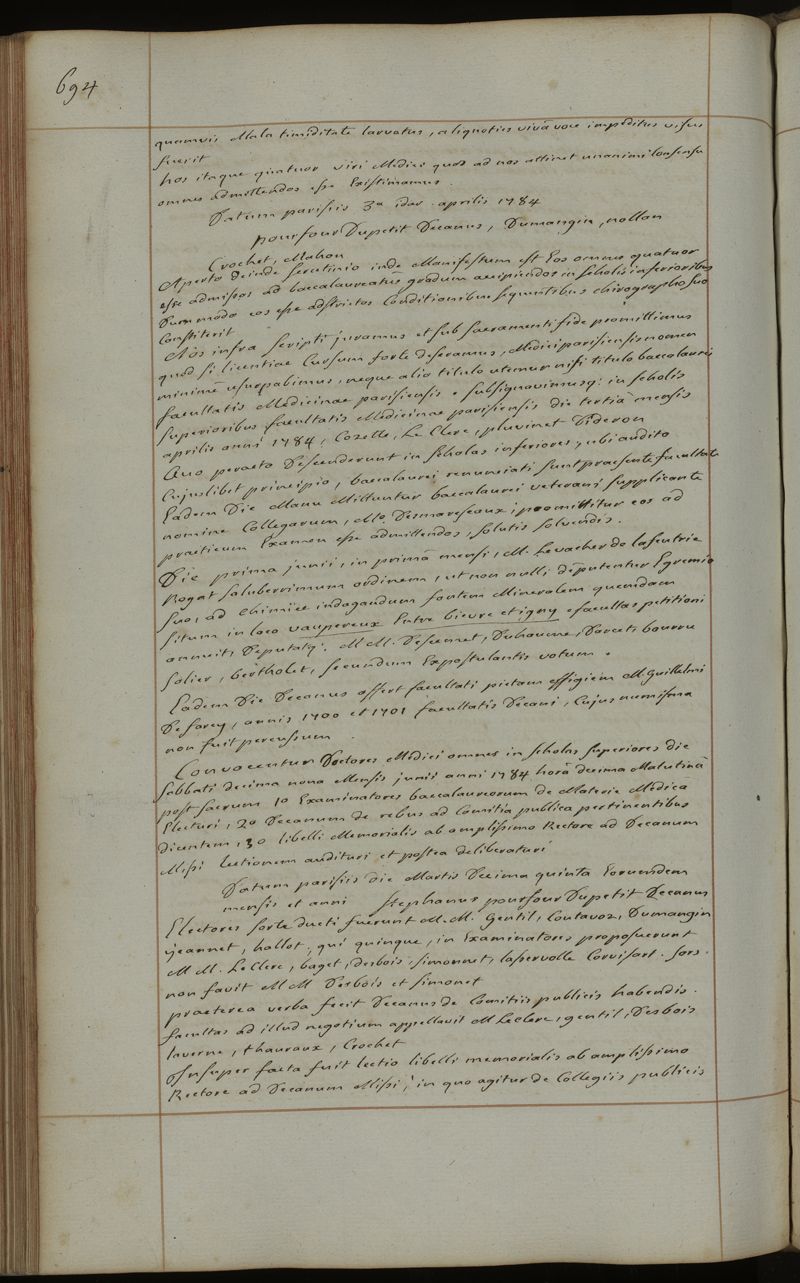 694
quamvis Mala timiditate larvatus, aliquoties vivâ voce impeditus visus
fuerit
hos itaque quatuor viri Medici quod ad nos attinet unanimi Consensu
omnes admittendos esse Existimamus.
Datum parisiis 3a idus aprilis 1784
pourfour Dupetit Decanus, Dumangin, nollan
Crochet, Mahon
Aperto Deinde scrutinio inde Manifestum est Eos omnes quatuor
esse admissos ad baccalaureatûs gradum accipiendos in scholis inferioribus
Dummodo eos esse adstrictos Conditionibus sequentibus chirographo suo
Constiterit
Nos infra scripti juramus et sub sacramenti fide promittimus
quod si licentiae Cursum forte deseramus, Medici parisiensis nomen
minimè usurpabimus, neque alio titulo utemur nisi titulo baccalaurei
facultatis Medicinae parisiensis. subsignavimusq: in scholis
superioribus facultatis Medicinae parisiensis die tertiâ mensis
aprilis anni 1784, Cozette, Le Clerc, pluvinet Dideron
Quo peracto Descenderunt in scholas inferiores, ubi audito
Cujuslibet principio, baccalaurei renunciati sunt praesente facultate
Eadem Die Manu Mittuntur baccalaurei veterani supplicante
nomine Collegarum, Mo. Desmareseaux; promittitur eos ad
practicum Examen esse admittendos, solutis solvendis.
Die prima junii, in primâ mensi, M. Levacher de lafeutrie
Rogat saluberrimum ordinem, ut non nulli deputentur Egremio
suo, ad Chimicè indagandum fontem Mineralem quemdam
situm in loco vaupereux Entre bievre et igny. facultas petitioni
annuit, Deputatq: M M. Descemet, Duhaume, Darcet, bourru
solier, bertholet, secundum Expostulantis votum.
Eadem Die Decanus affert facultati pictam effigiem M. Guillelmi
De farcy, annis 1700 et 1701 facultatis Decani, Cujus numisma
non fuit percussum.
Convocentur Doctores Medici omnes in scholas superiores die
sabbati decima nona Mensis junii anni 1784 horâ decima Matutinâ
post sacrum 1o Examinatores baccalaureorum de Materie Medica
Electuri, 2o Decanum de rebus ad Comitia publica pertinentibus
dicentem, 3o libelli Memorialis ab amplissimo Rectore ad Decanum
Missi lectionem audituri et postea deliberaturi
Datum parisiis die Martis Decima quinta Eorumdem
mensis et anni Stephanus pourfour Dupetit Decanus
Electores sorte ducti fuerunt M. M. Gentil, Coutavoz, Dumangin
jeannet, hallot, qui quinque, in Examinatores proposuerunt
M M. Le Clerc, baget, desbois, simonnet, laservolle Corvisart. sors.
non favit M M Desbois et simonet
praeterea verba fecit Decanus de Comitiis publicis habendis.
facultas ad illud negotium appellavit M Leclerc, gentil, Desbois
laverne, thauraux, Crochet
Insuper facta fuit lectio libelli memorialis ab amplissimo
Rectore ad Decanum Missi, in quo agitur de Collegiis publicis